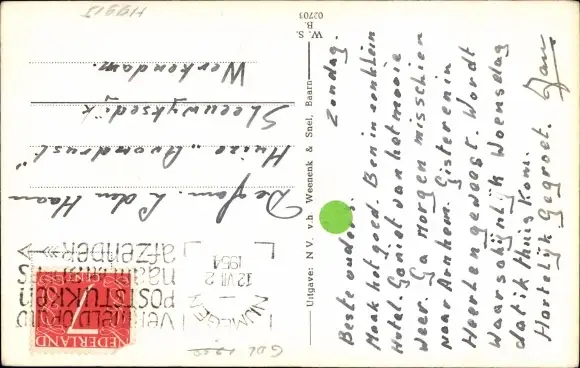 Zondag.
Beste ouders.
Maak het goed. Ben in een klein
Hotel. Geniet van het mooie
weer. Ga morgen misschien
naar Arnhem. Gisteren in
Heerlen geweest. Wordt
Waarschijnlijk Woensdag
dat ik thuis kom.
Hartelijk Gegroet.
W. S.
B.
02703
Uitgave: N.V. v.h. Weenenk & Snel, Baarn
NIJMEGEN
12 VII 2
1954
VERMELD OP UW
POSTSTUKKEN
afzender
NEDERLAND
7
De fam. L den Haan
Huize „Avondrust"
Sleeuwijksedijk
Werkendam.